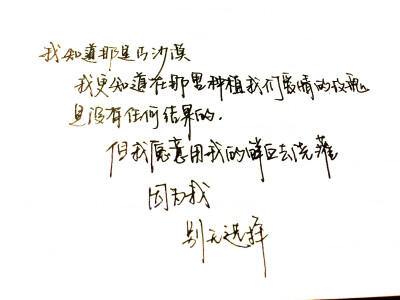 我知道那是片沙漠
我更知道在那里种植我们爱情的玫瑰
是没有任何结果的.
但我愿意用我的鲜血去浇灌
因为我
别无选择